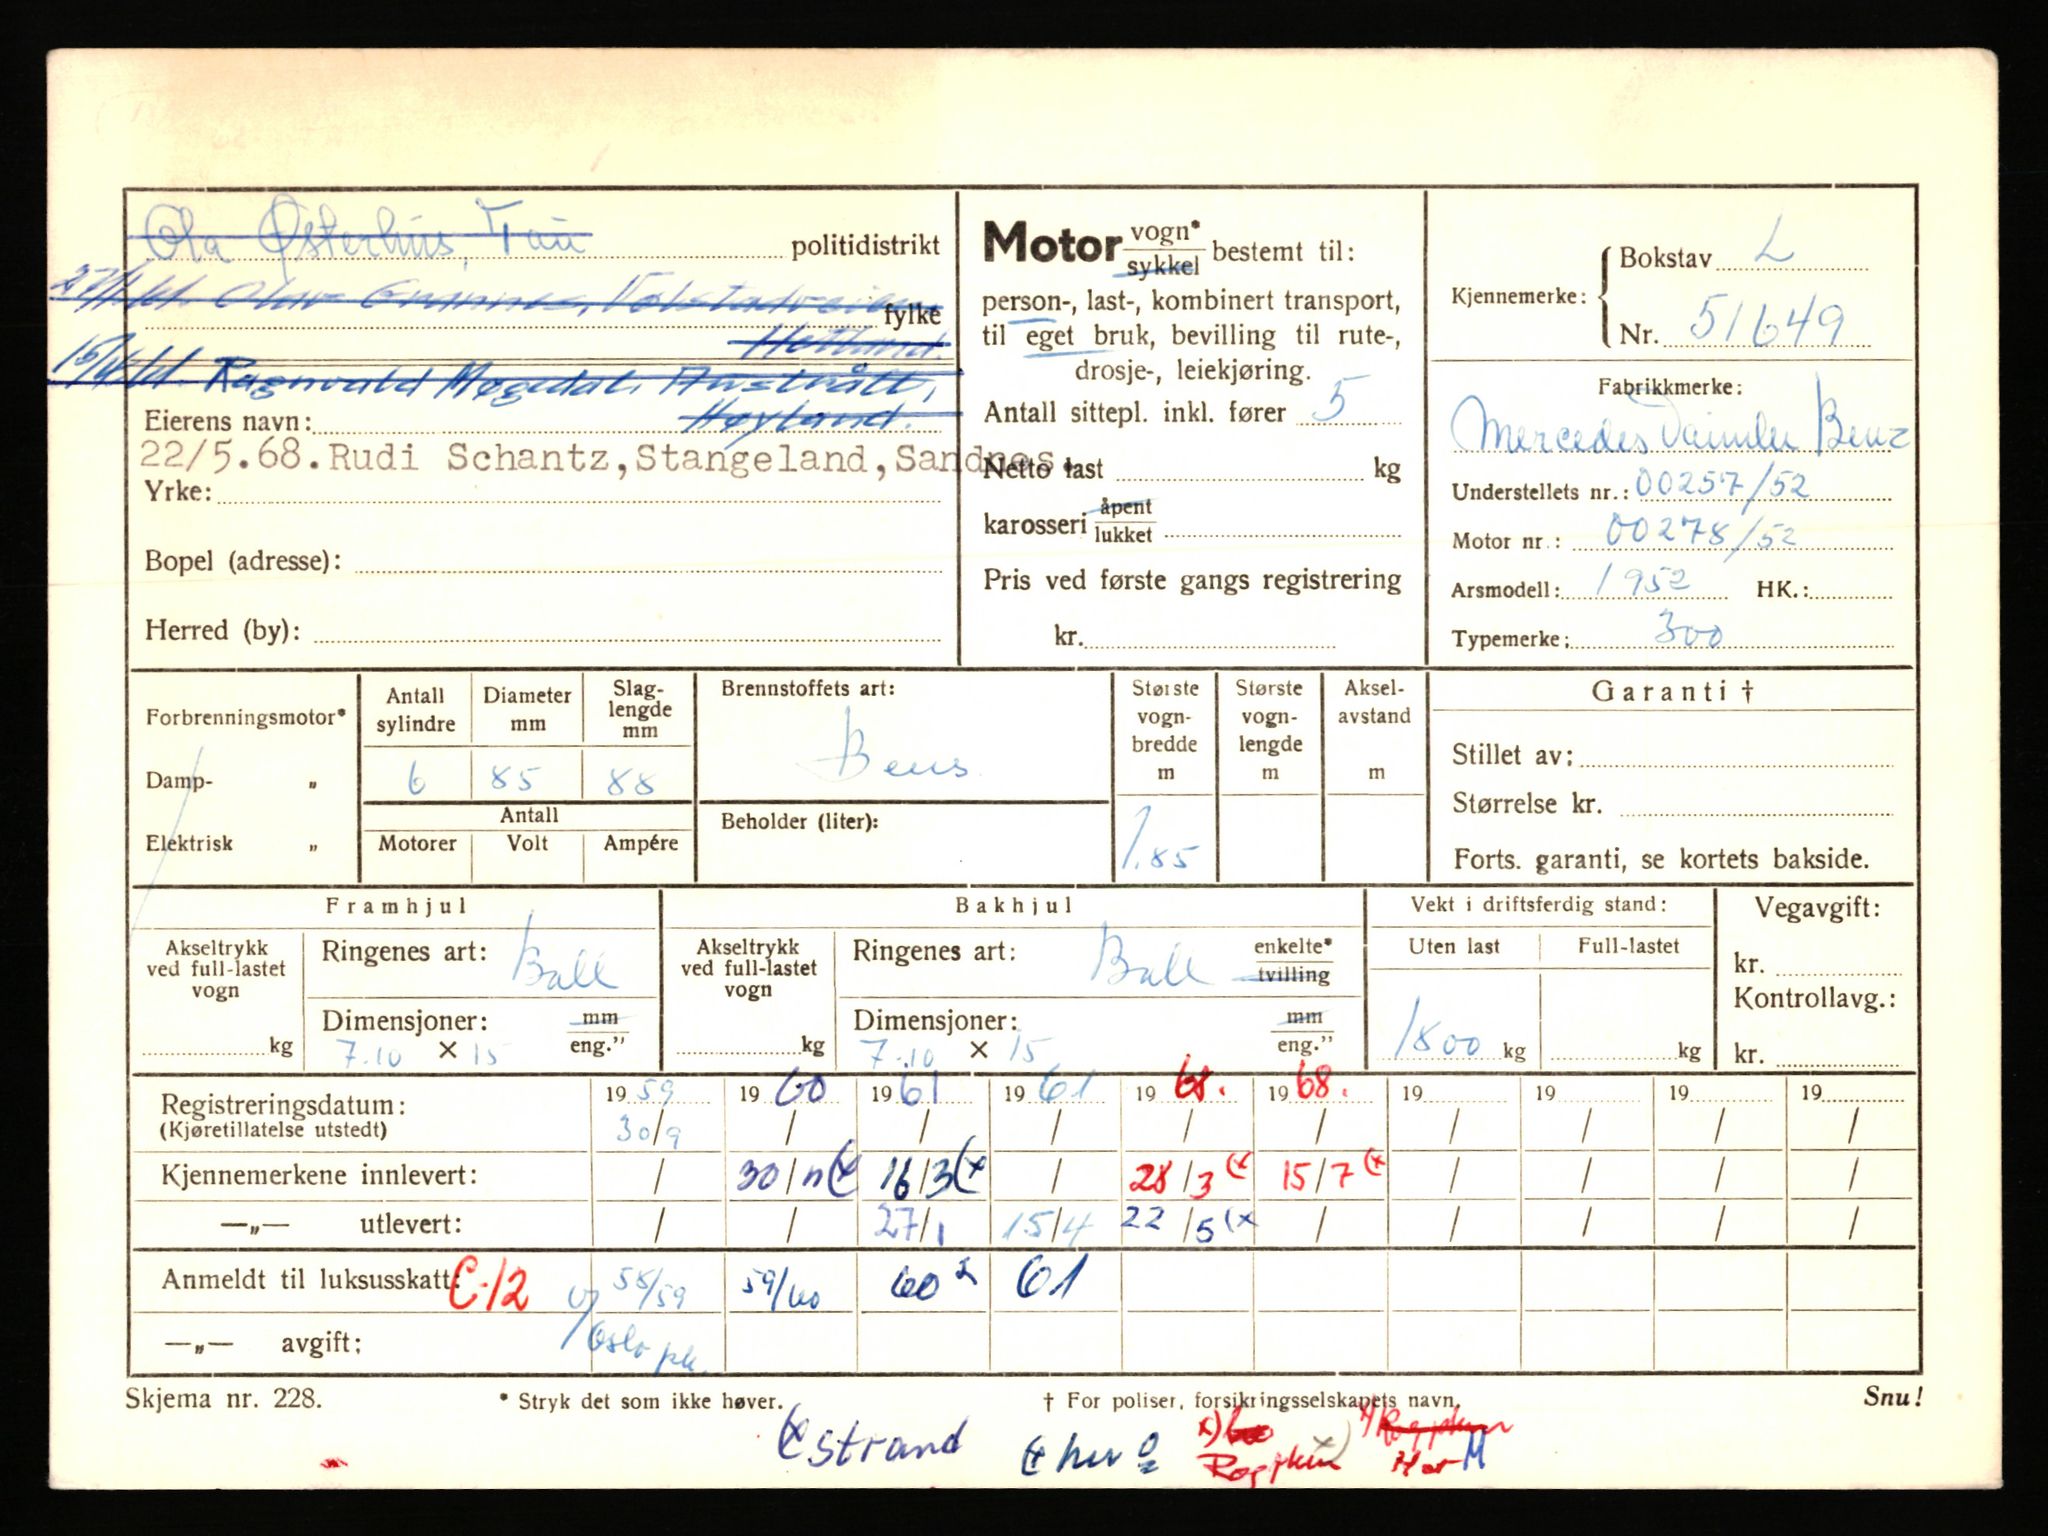 Ola Østerhus, Tau politidistrikt
27/1.61. Olav Grannes, Tolstadveien fylke
Hetland.
15/4.61. Ragnvald Møgedal, Austrått,
Høyland.
Eierens navn:
22/5.68. Rudi Schantz, Stangeland, Sandnes.
Yrke:
Bopel (adresse):
Herred (by):
Motor vogn* / sykkel bestemt til:
person-, last-, kombinert transport,
til eget bruk, bevilling til rute-,
drosje-, leiekjøring.
Antall sittepl. inkl. fører 5
Netto last kg
karosseri åpent / lukket
Pris ved første gangs registrering
kr.
Kjennemerke: Bokstav L
Nr. 51649
Fabrikkmerke:
Mercedes Daimler Benz
Understellets nr.: 00257/52
Motor nr.: 00278/52
Arsmodell: 1952 HK.:
Typemerke: 300
Forbrenningsmotor*
Damp- „
Elektrisk „
Antall sylindre 6
Diameter mm 85
Slag-lengde mm 88
Antall
Motorer Volt Ampére
Brennstoffets art:
Bens
Beholder (liter):
Største vogn-bredde m 1.85
Største vogn-lengde m
Aksel-avstand m
Garanti †
Stillet av:
Størrelse kr.
Forts. garanti, se kortets bakside.
Framhjul
Akseltrykk ved full-lastet vogn kg
Ringenes art: Ball
Dimensjoner: mm / eng.”
7.10 × 15
Bakhjul
Akseltrykk ved full-lastet vogn kg
Ringenes art: Ball enkelte* / tvilling
Dimensjoner: mm / eng.”
7.10 × 15
Vekt i driftsferdig stand:
Uten last Full-lastet
1800 kg kg
Vegavgift:
kr.
Kontrollavg.:
kr.
1959 1960 1961 1961 1968. 1968. 19 19 19 19
Registreringsdatum: 30/9 / / / / / / / / /
(Kjøretillatelse utstedt)
Kjennemerkene innlevert: / 30/11 (x 16/3 (x / 28/3 (x 15/7 (x / / / /
—„— utlevert: / / 27/1 15/4 22/5 (x / / / / /
Anmeldt til luksusskatt: C-12 58/59 59/60 60 2 61
—„— avgift: Oslo pk.
Skjema nr. 228. * Stryk det som ikke høver. † For poliser, forsikringsselskapets navn. Snu!
(x strand (x her x)
Rogpkm Her M